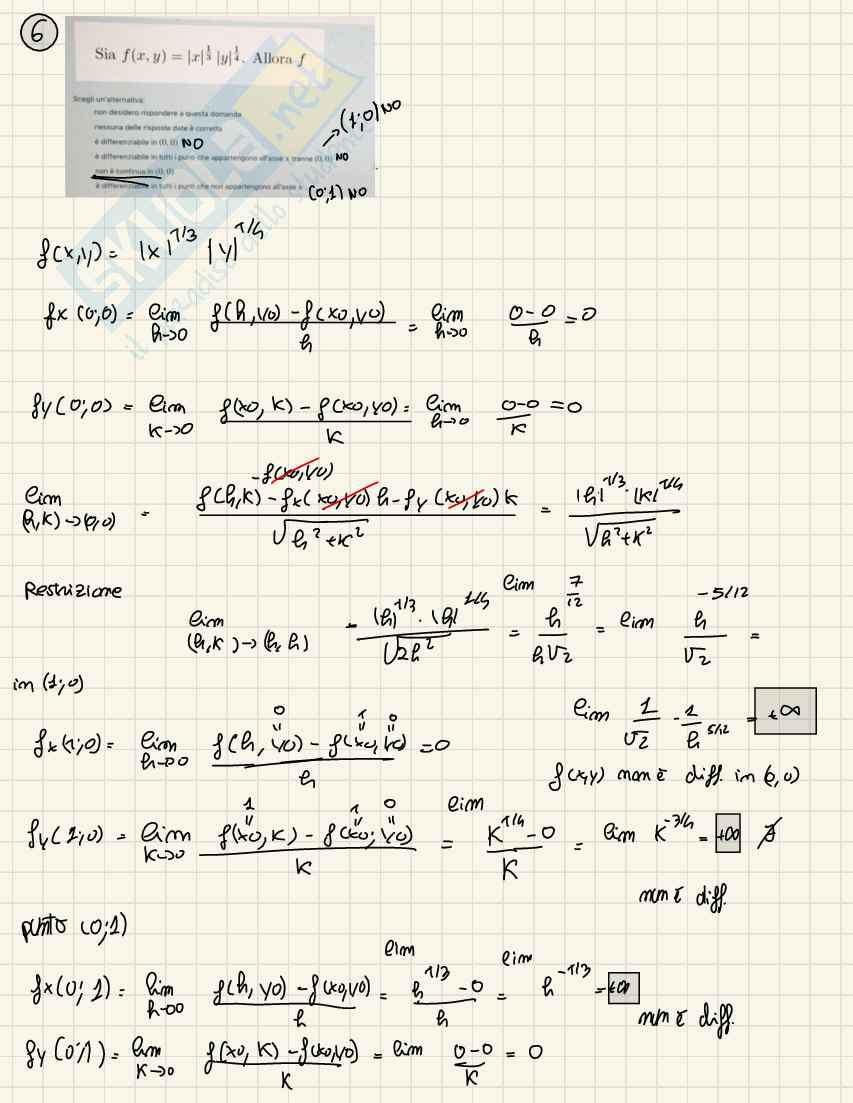 6
Sia f(x, y) = |x|^{1/3} |y|^{1/4}. Allora f
Scegli un'alternativa:
non desidero rispondere a questa domanda
nessuna delle risposte date è corretta
è differenziabile in (0, 0) NO
è differenziabile in tutti i punti che appartengono all'asse x tranne (0, 0) NO → (1;0) NO
non è continua in (0, 0)
è differenziabile in tutti i punti che non appartengono all'asse x (0;1) NO
SKUOLA.net
il paradiso dello studente
f(x,y) = |x|^{1/3} |y|^{1/4}
fx (0;0) = lim h→0 f(h,y0) - f(x0,y0) / h = lim h→0 0-0 / h = 0
fy (0;0) = lim k→0 f(x0,k) - f(x0,y0) / k = lim h→0 0-0 / k = 0
-f(x0,y0)
lim (h,k)→(0,0) = f(h,k) - fx(x0,y0) h - fy (x0,y0) k / √h²+k² = |h|^{1/3} · |k|^{1/4} / √h²+k²
Restrizione
lim (h,k)→(h,h) = |h|^{1/3} · |h|^{1/4} / √2h² = lim h^{7/12} / h√2 = lim h^{-5/12} / √2 =
lim 1/√2 · 1/h^{5/12} = +∞
in (1;0)
fx(1;0) = lim h→0 f(h,y0) - f(x0,y0) / h = 0
0 1 0
f(x,y) non è diff. in (0,0)
1 1 0
fy(1;0) = lim k→0 f(x0,k) - f(x0;y0) / k = lim k^{1/4} - 0 / k = lim k^{-3/4} = +∞ ∄
non è diff.
punto (0;1)
fx(0;1) = lim h→0 f(h,y0) - f(x0,y0) / h = lim h^{1/3} - 0 / h = lim h^{-1/3} = +∞
non è diff.
fy (0;1) = lim k→0 f(x0,k) - f(x0,y0) / k = lim 0-0 / k = 0